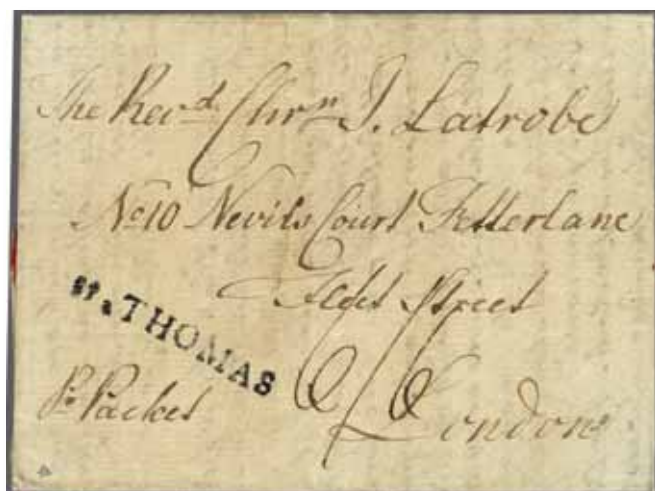 The Revd. Chrn. I. Latrobe
No 10 Nevils Court Fetterlane
Fleet Street
St. THOMAS
Pr Packet
London